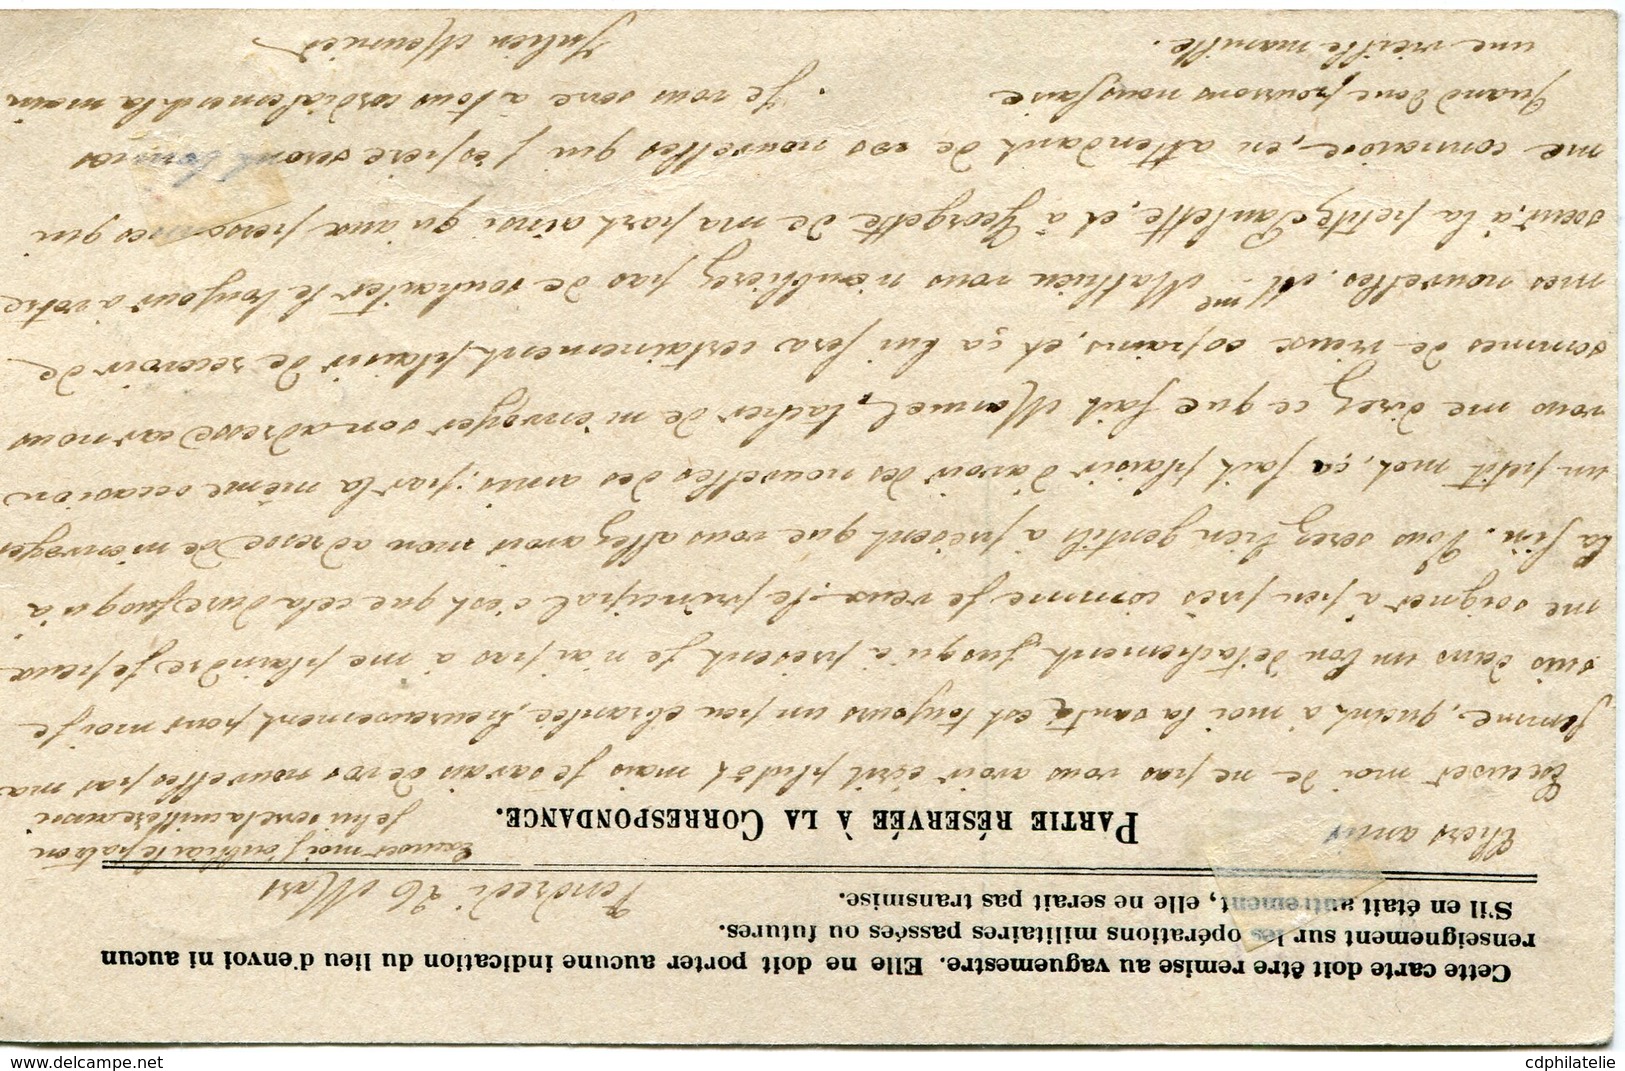 Cette carte doit être remise au vaguemestre. Elle ne doit porter aucune indication du lieu d'envoi ni aucun
renseignement sur les opérations militaires passées ou futures.
S'il en était autrement, elle ne serait pas transmise.
Vendredi 26 Mars
PARTIE RÉSERVÉE À LA CORRESPONDANCE.
Excuser moi j'oubliai le patron
je lui serre la cuillère aussi
Chers amis
Excuser moi de ne pas vous avoir écrit plutôt mais je savais de vos nouvelles par ma
femme, quant à moi la santé est toujours un peu ébranlée, heureusement pour moi je
suis dans un bon détachement jusqu'à présent je n'ai pas à me plaindre, je peux
me soigner à peu près comme je veux le principal c'est que cela dure jusqu'à
la fin. Vous serez bien gentils à présent que vous allez avoir mon adresse de m'envoyer
un petit mot, ça fait plaisir d'avoir des nouvelles des amis; par la même occasion
vous me direz ce que fait Marcel, tacher de m'envoyer son adresse car nous
sommes de vieux copains, et ça lui fera certainement plaisir de recevoir de
mes nouvelles. Mme Mathieu vous n'oublierez pas de souhaiter le bonjour à votre
sœur, à la petite Paulette, et à Georgette de ma part ainsi qu'aux personnes qui
me connaisse, en attendant de vos nouvelles qui j'espère seront bonnes
Quand donc pourrons nous faire
une vieille manille.
Je vous serre a tous cordialement la main
Julien Meunier
cdphilatelie